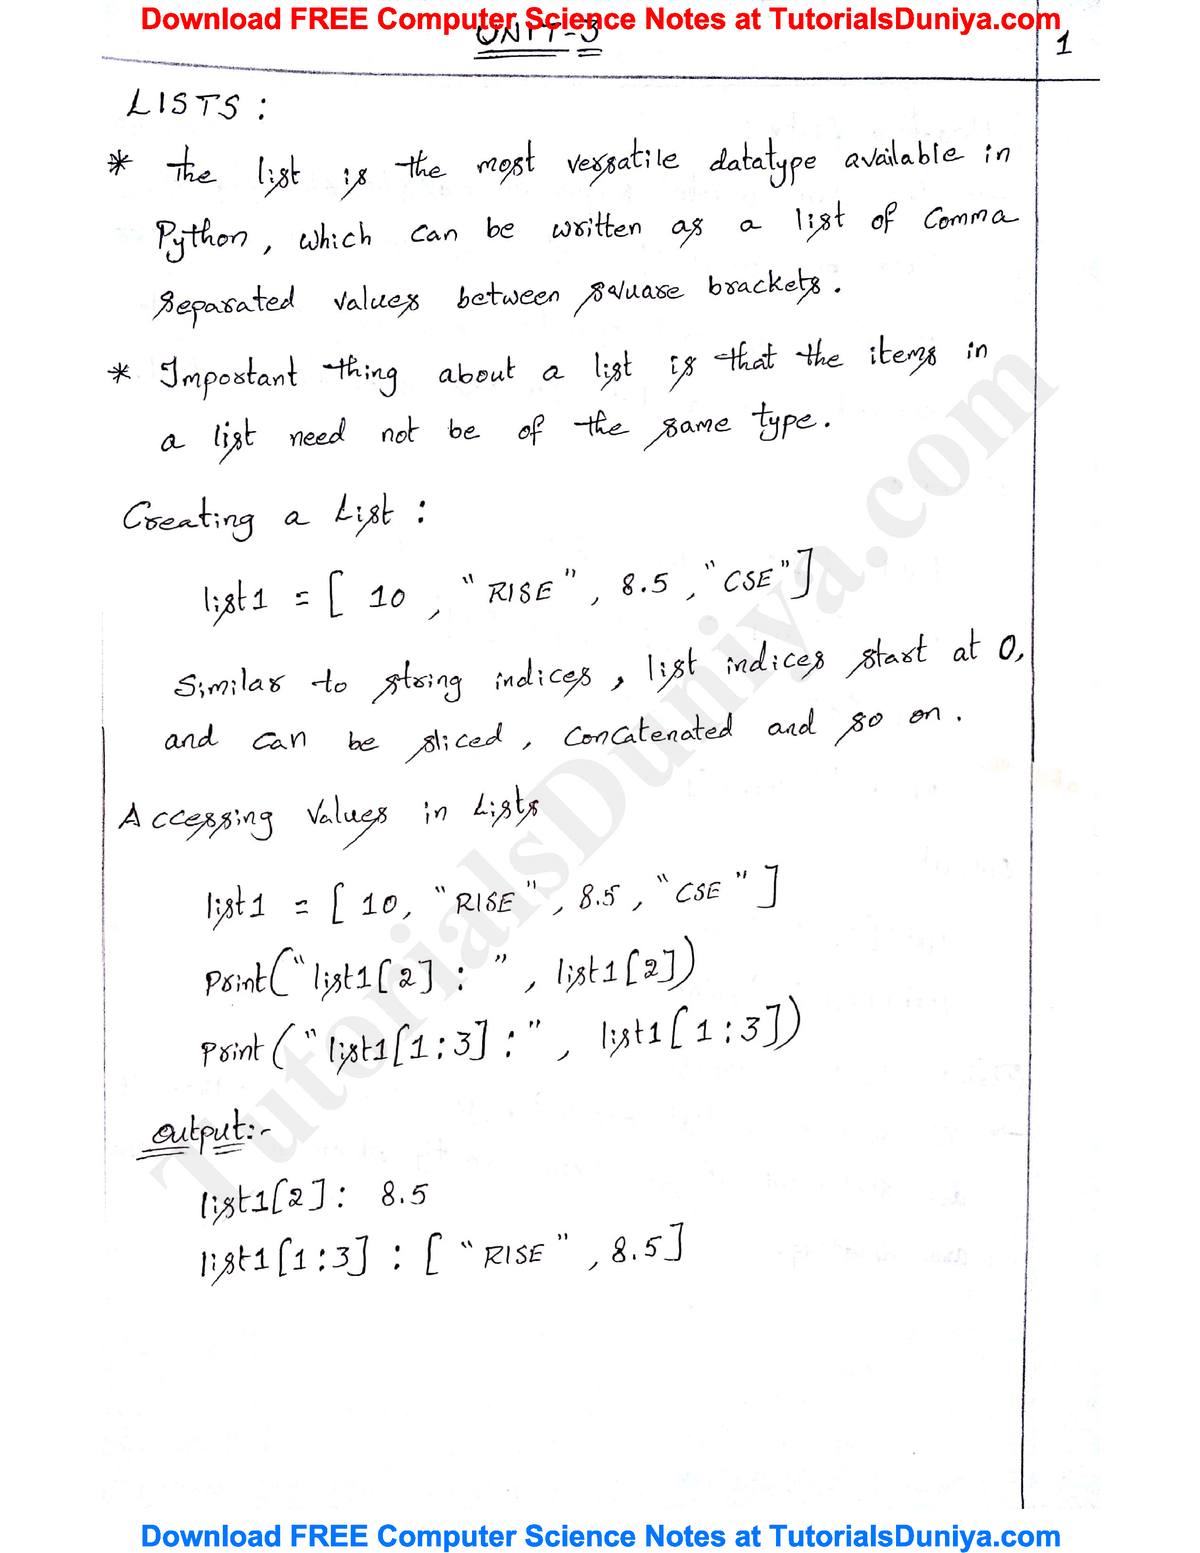 Download FREE Computer Science Notes at TutorialsDuniya.com
UNIT-3
1
LISTS :
* The list is the most versatile datatype available in
Python, which can be written as a list of Comma
Separated values between square brackets.
* Important thing about a list is that the items in
a list need not be of the same type.
Creating a List :
list1 = [ 10 , "RISE" , 8.5 , "CSE"]
Similar to string indices, list indices start at 0,
and can be sliced, Concatenated and so on.
Accessing Values in Lists
list1 = [ 10, "RISE" , 8.5 , "CSE" ]
Print("list1[2] : " , list1[2])
Print ("list1[1:3] : " , list1[1:3])
Output:-
list1[2] : 8.5
list1[1:3] : [ "RISE" , 8.5]
TutorialsDuniya.com
Download FREE Computer Science Notes at TutorialsDuniya.com